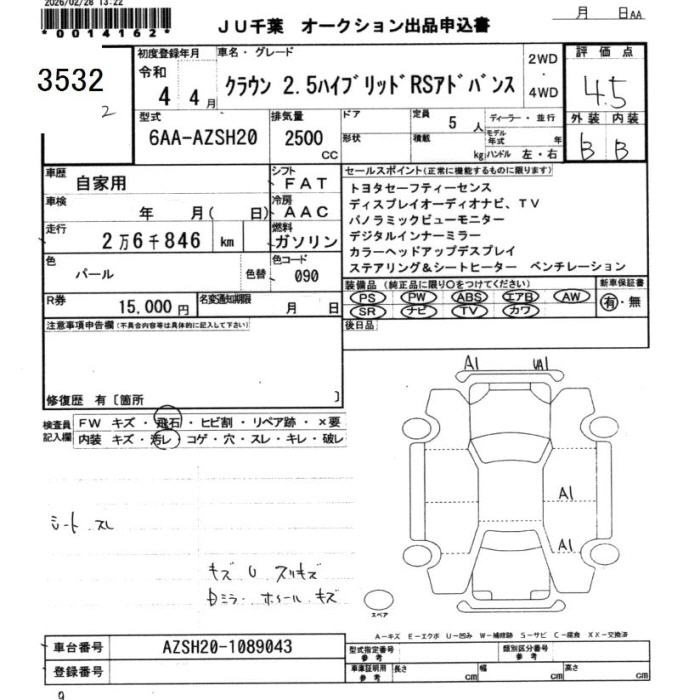 2026/02/28 13:22
*0014162*
JU千葉 オークション出品申込書
月 日AA
3532
2
初度登録年月
令和
4 4月
車名・グレード
クラウン 2.5ハイブリッドRSアドバンス
2WD
・
4WD
評価点
4.5
外装 内装
B B
型式
6AA-AZSH20
排気量
2500
CC
ドア
形状
定員
5 人
積載
kg
ディーラー・並行
モデル年式 年
ハンドル 左・右
車歴
自家用
シフト
FAT
車検
年 月( 日)
冷房
AAC
走行
2万6千846 km
燃料
ガソリン
色
パール
色替
色コード
090
R券
15,000円
名変通知期限
月 日
セールスポイント(正常に機能するものに限ります)
トヨタセーフティーセンス
ディスプレイオーディオナビ、TV
パノラミックビューモニター
デジタルインナーミラー
カラーヘッドアップディスプレイ
ステアリング&シートヒーター ベンチレーション
装備品(純正品に限り○をつけてください)
PS PW ABS エアB AW
SR ナビ TV カワ
新車保証書
有・無
後日品
注意事項申告欄(不具合内容等は具体的に記入して下さい)
修復歴 有〔箇所 〕
検査員記入欄
FW キズ・飛石・ヒビ割・リペア跡・×要
内装 キズ・汚レ・コゲ・穴・スレ・キレ・破レ
シート スレ
キズ U スリキズ
ミラー ホイール キズ
A1
UA1
A1
A1
スペア
A-キズ E-エクボ U-凹み W-補修跡 S-サビ C-腐食 XX-交換済
車台番号
AZSH20-1089043
登録番号
型式指定番号
参考
類別区分番号
参考
車庫証明用
参考
長さ cm
幅 cm
高さ cm